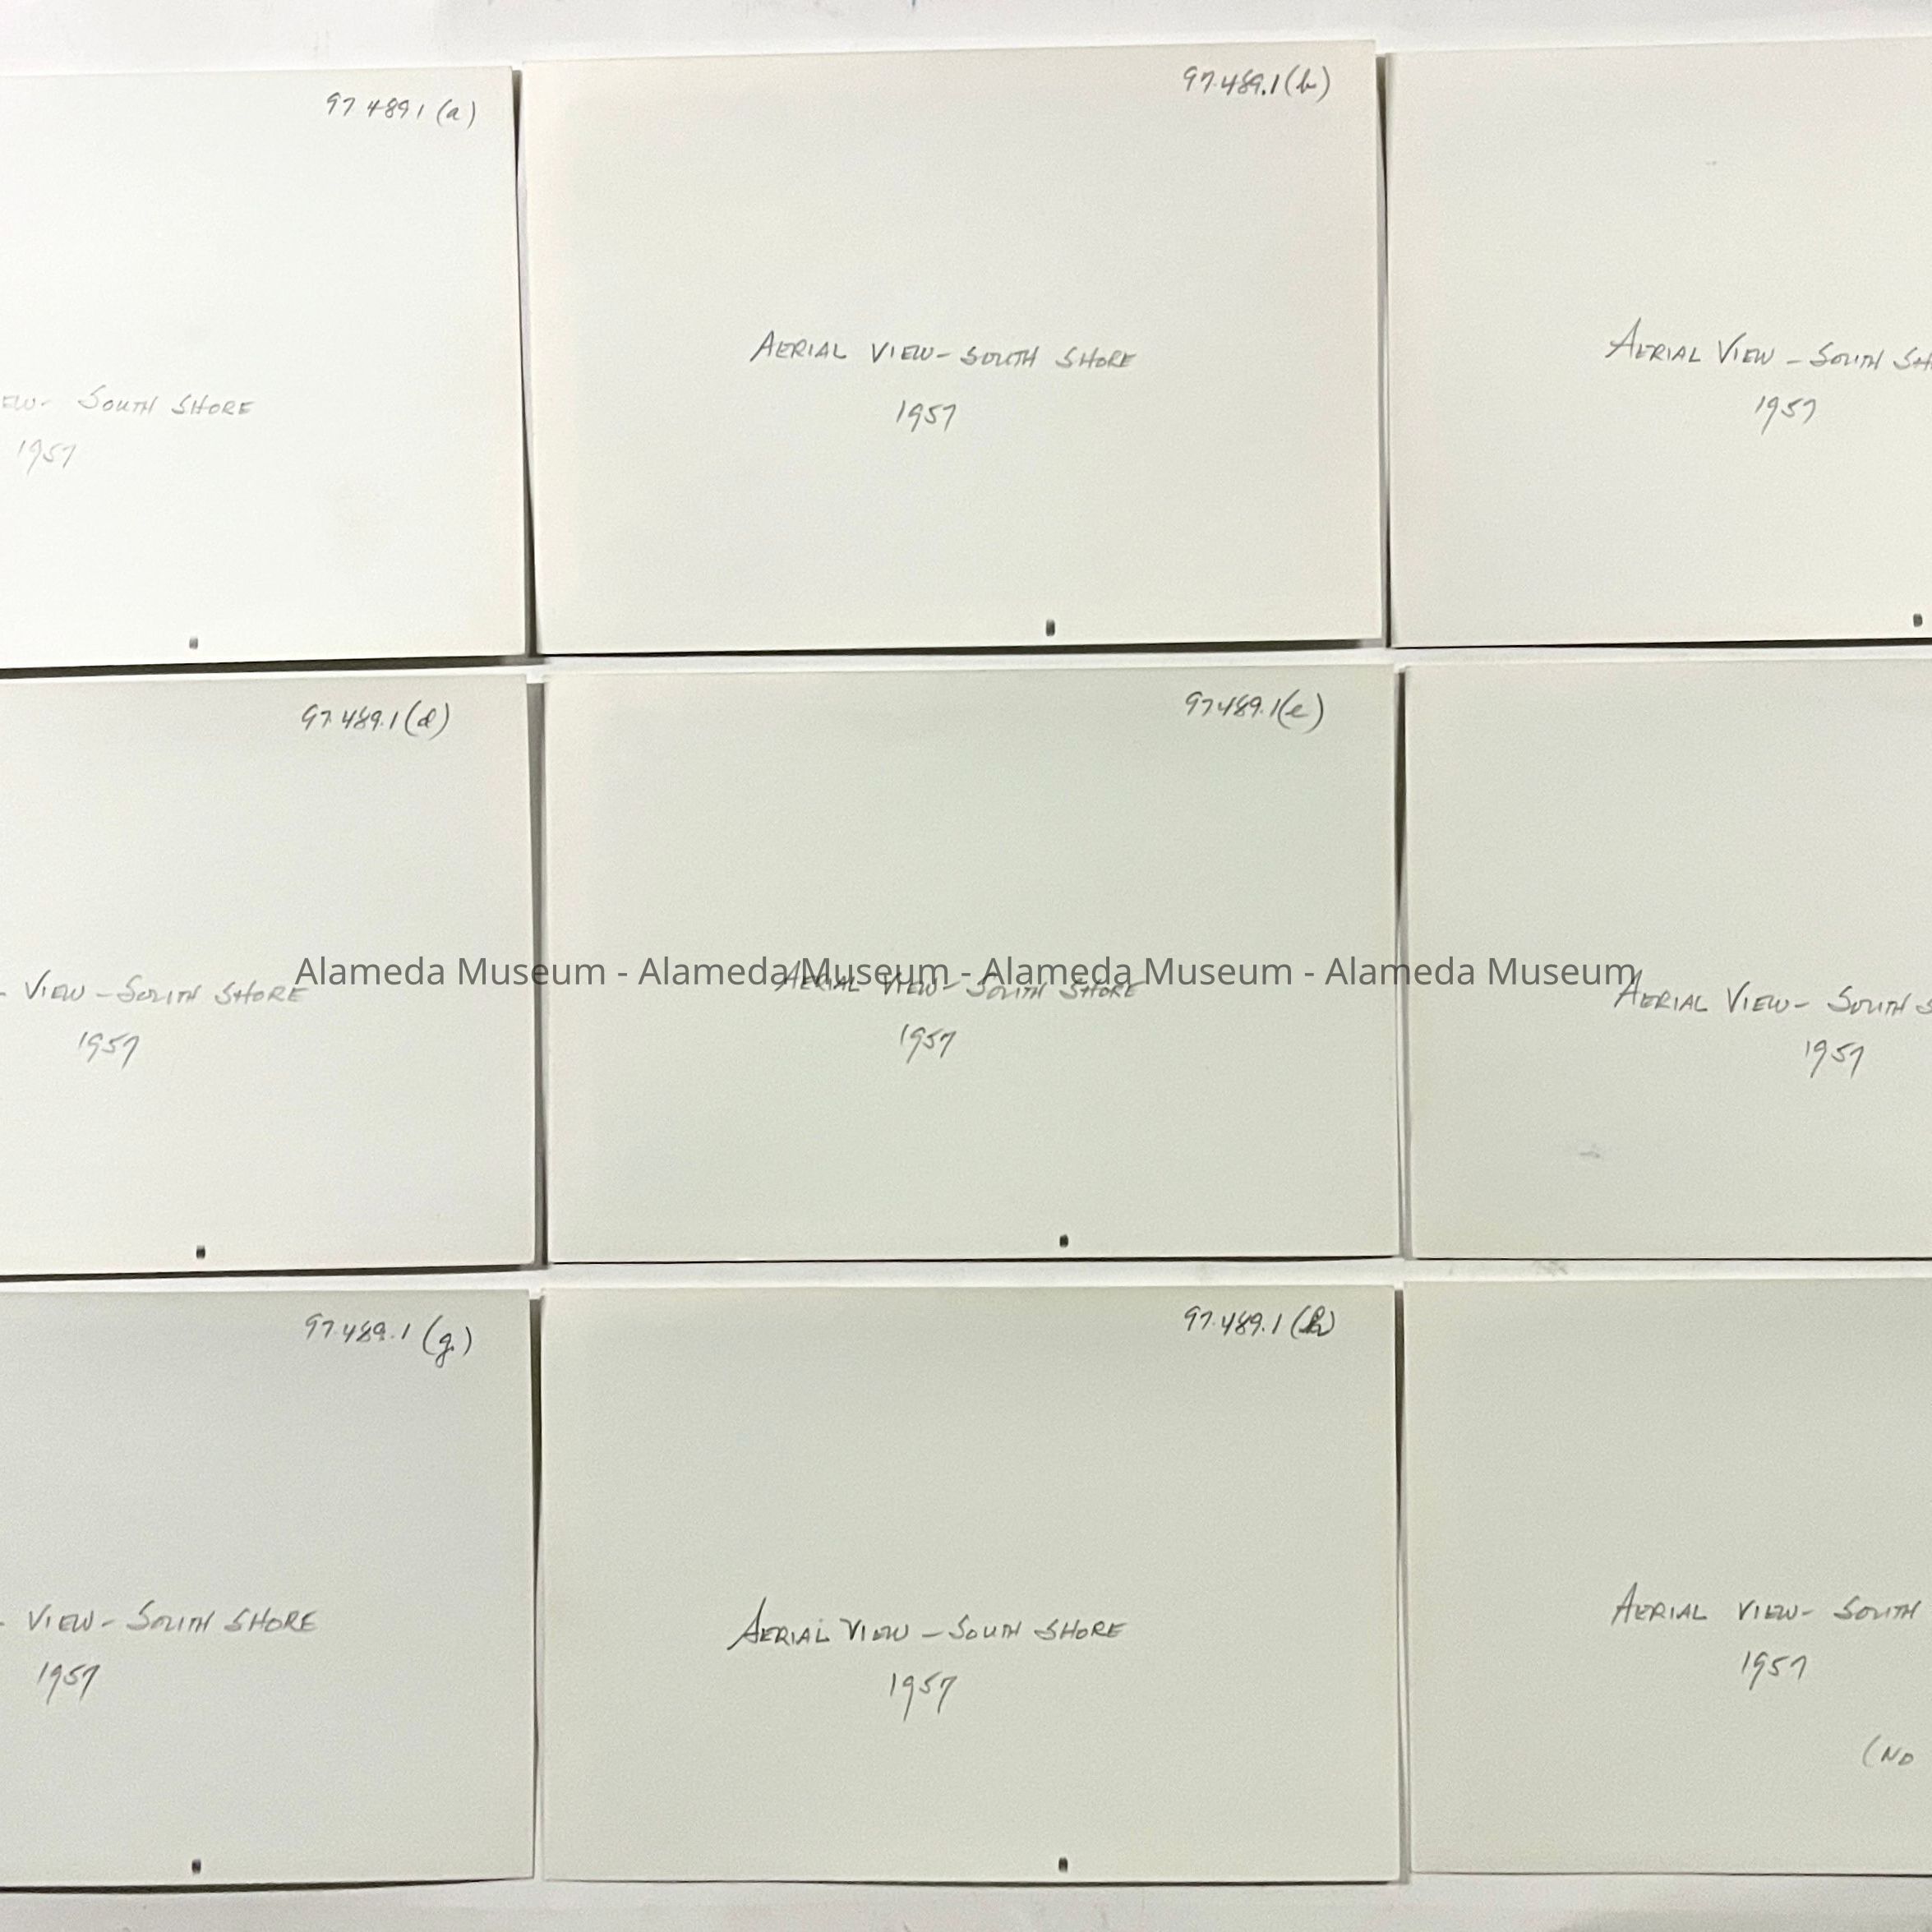 97.489.1 (a)
EW- SOUTH SHORE
1957
97.489.1 (b)
AERIAL VIEW - SOUTH SHORE
1957
AERIAL VIEW - SOUTH SH
1957
97.489.1 (d)
- VIEW - SOUTH SHORE
1957
97.489.1 (e)
AERIAL VIEW - SOUTH SHORE
1957
AERIAL VIEW - SOUTH S
1957
Alameda Museum - Alameda Museum - Alameda Museum - Alameda Museum
97.489.1 (g)
- VIEW - SOUTH SHORE
1957
97.489.1 (h)
AERIAL VIEW - SOUTH SHORE
1957
AERIAL VIEW - SOUTH
1957
(NO